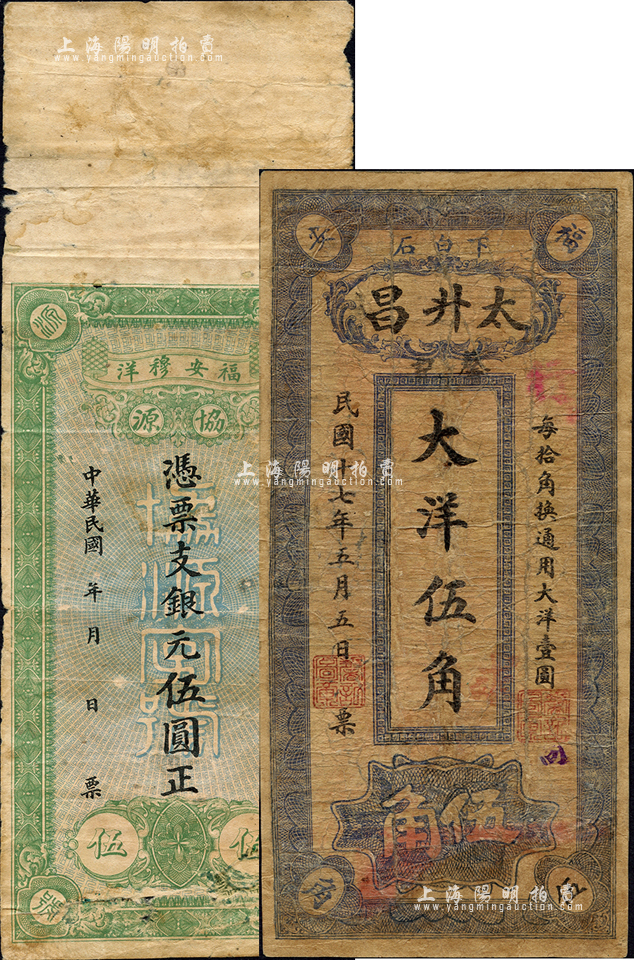 上海陽明拍賣
www.yangmingauction.com
源
福安穆洋
協源
憑票支銀元伍圓正
中華民國 年 月 日 票
協源
伍
伍
號
福
安
下白石
太升昌
每拾角換通用大洋壹圓
大洋伍角
民國十七年五月五日 票
上海陽明拍賣
www.yangmingauction.com
伍角
伍
角
上海陽明拍賣
www.yangmingauction.com